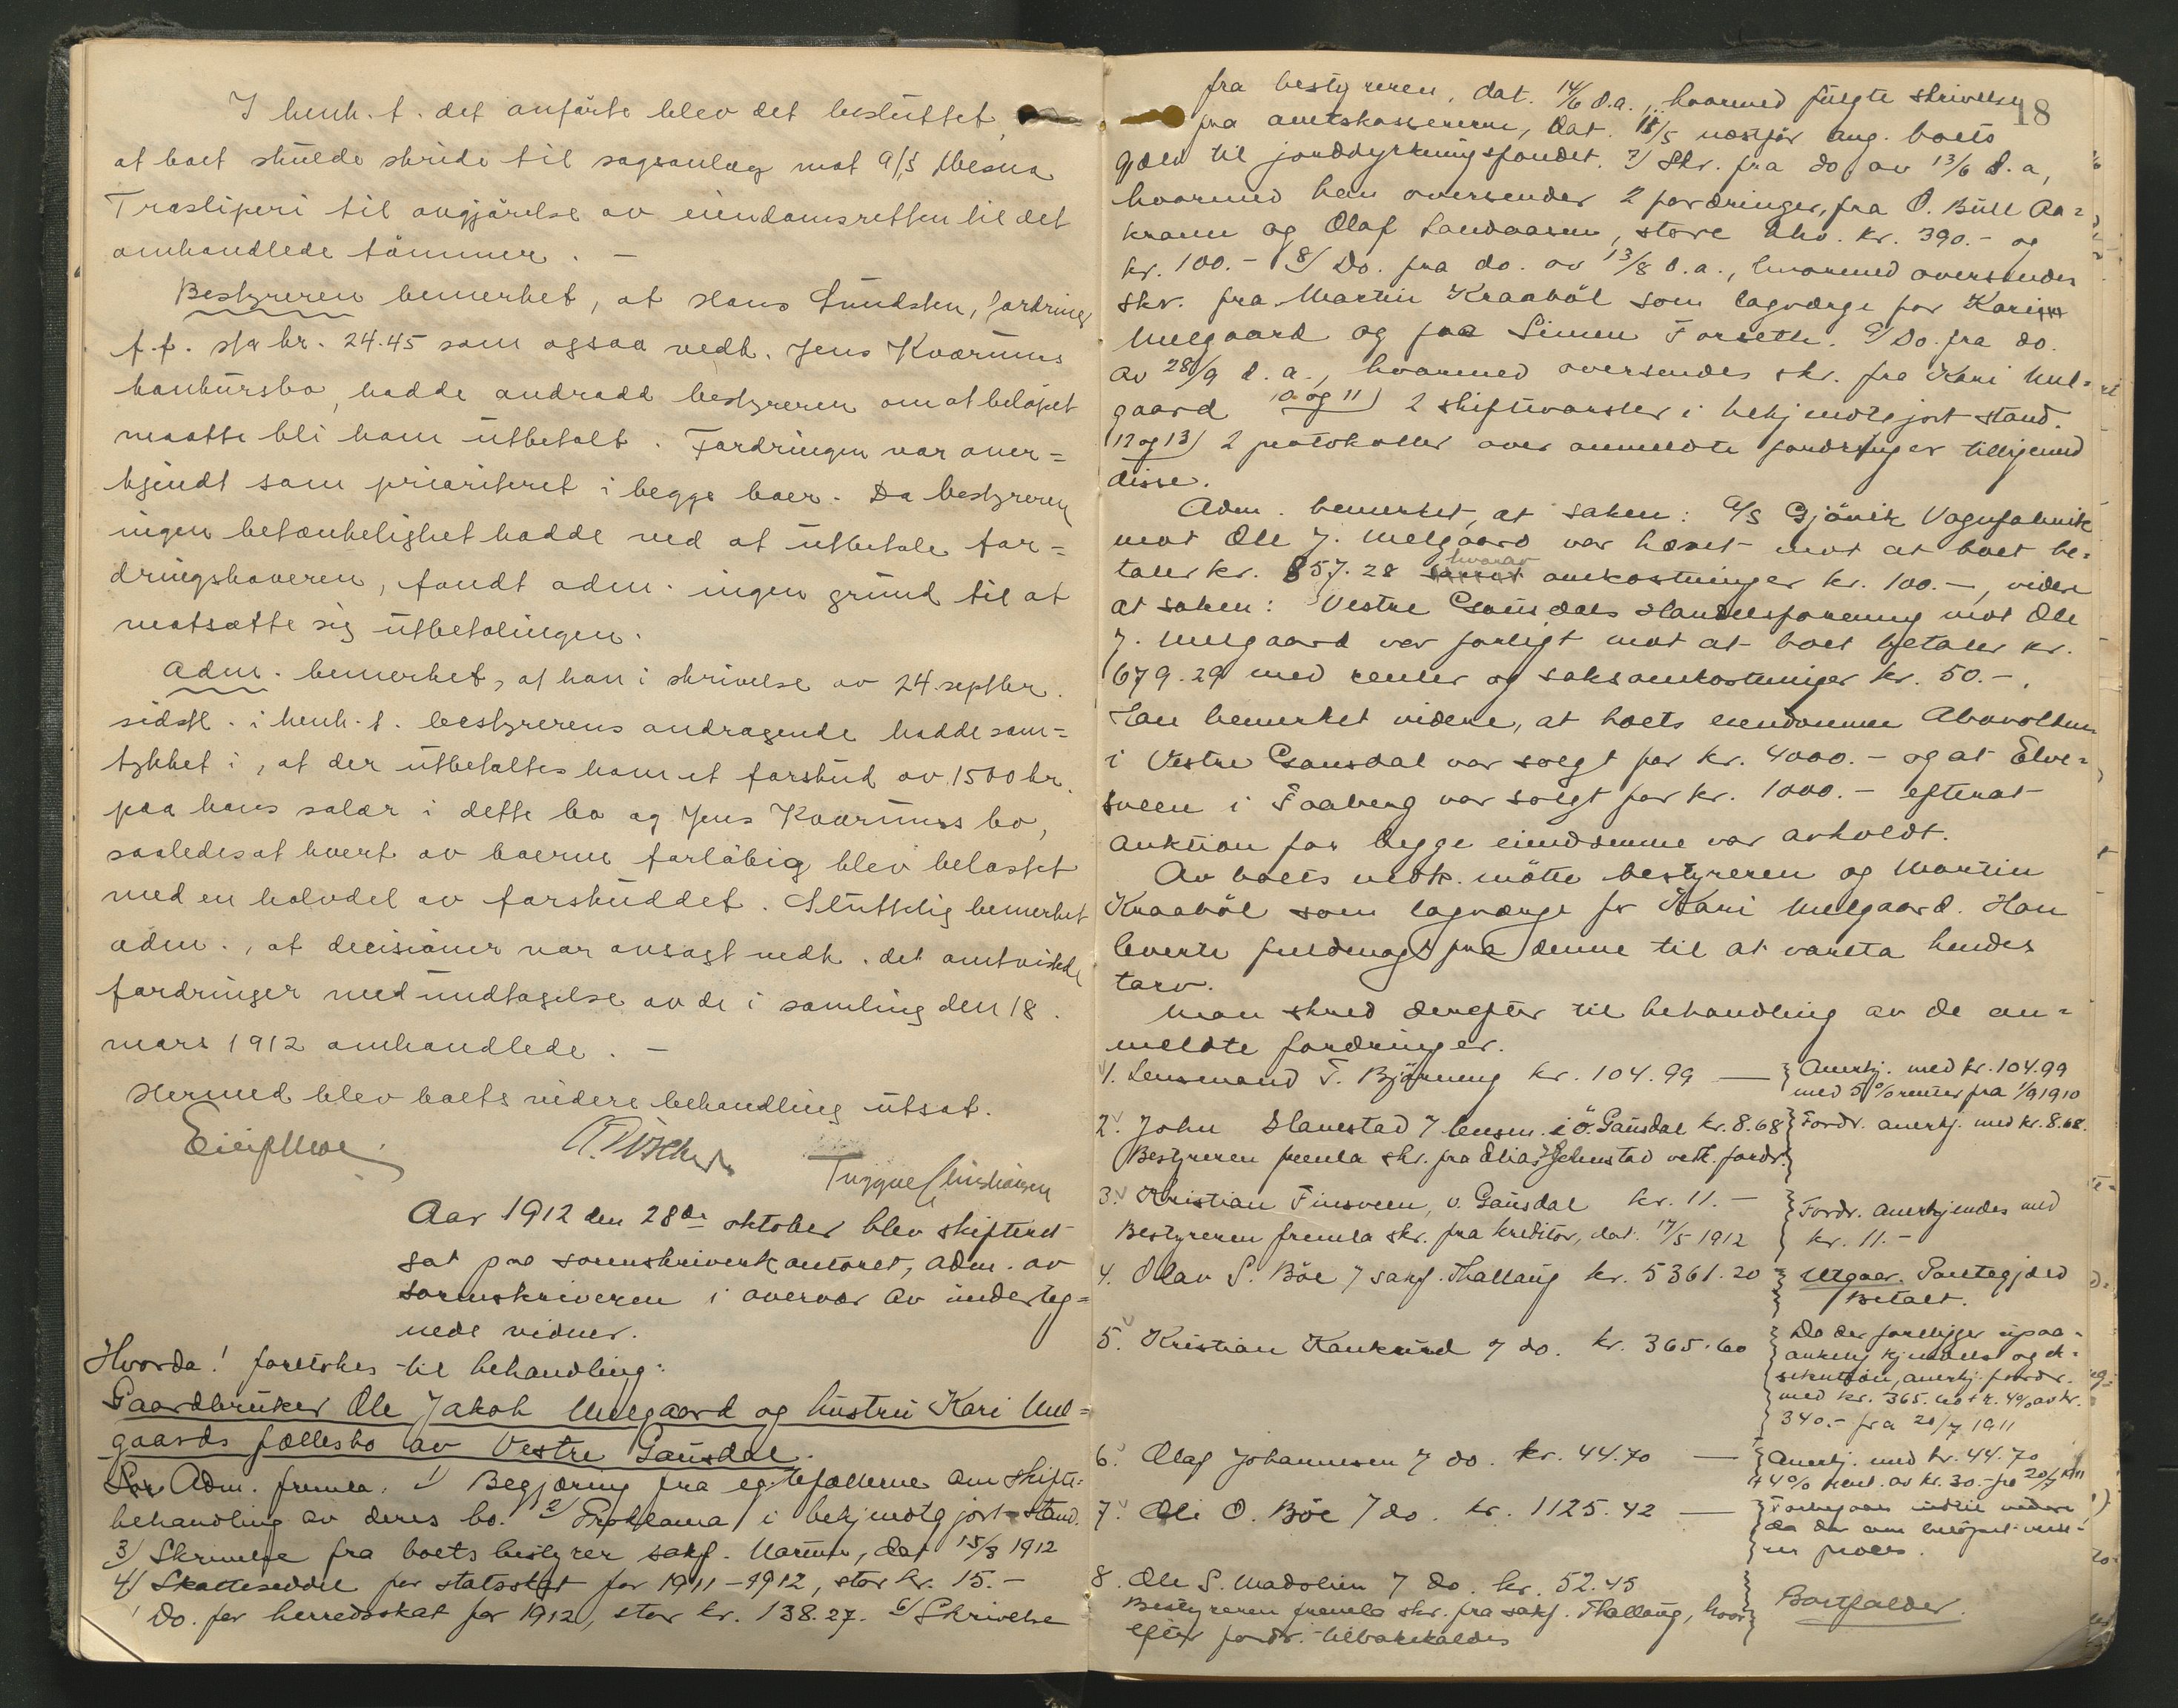 I henh. t. det anførte blev det besluttet,
at boet skulde skride til sagsanlæg mot A/S Mesna
Træsliperi til avgjørelse av eiendomsretten til det
omhandlede tømmer. —
Bestyreren bemerket, at Hans Lundstens fordring
f.f. sta kr. 24.45 som ogsaa vedk. Jens Kværnums
konkursbo, hadde andradd bestyreren om at beløpet
maatte bli ham utbetalt. Fordringen var aner=
kjendt som prioriteret i begge boer. Da bestyreren
ingen betænkelighet hadde ved at utbetale for=
dringshaveren, fandt adm. ingen grund til at
motsætte sig utbetalingen.
Adm. bemerket, at han i skrivelse av 24. septbr.
sidstl. i henh. t. bestyrerens andragende hadde sam=
tykket i, at der utbetaltes ham et forskud av 1500 kr.
paa hans salær i dette bo og Jens Kværnums bo,
saaledes at hvert av boerne forløbig blev belastet
med en halvdel av forskuddet. Sluttelig bemerket
adm., at decisioner var avsagt vedk. det omtvistede
fordringer med undtagelse av de i samling den 18.
mars 1912 omhandlede. —
Hermed blev boets videre behandling utsat.
Trygve Christiansen
Aar 1912 den 28de oktober blev skifteret
sat paa sorenskriverkontoret, adm. av
sorenskriveren i overvær av underteg=
nede vidner.
Hvorda! foretokes til behandling:
Gaardbruker Ole Jakob Melgaard og hustru Kari Mel=
gaards fællesbo av Vestre Gausdal.
Adm. fremla: 1) Begjæring fra egtefællerne om skifte=
behandling av deres bo. 2) Proklama i bekjendtgjort stand.
3) Skrivelse fra boets bestyrer sakf. , dat 15/3 1912
4) Skatteseddel for statsskat for 1911–1912, stor kr. 15.–
Do. for herredsskat for 1912, stor kr. 138.27. 6) Skrivelse
18
fra bestyreren, dat. 14/6 d.a., hvormed fulgte skrivelse
fra amtskassereren, dat. 18/5 næstfør ang. boets
gjæld til jorddyrkningsfondet. 7) Skr. fra do av 13/6 d.a,
hvormed han oversender 2 fordringer, fra O. Bull Aa=
krann og Olaf Sandaasen, store hhv. kr. 390.– og
kr. 100.– 8) Do. fra do. av 13/8 d.a., hvormed oversendes
skr. fra Martin Kraabøl som lagværge for Kari
Melgaard og fra Simen Forseth. 9) Do. fra do.
av 28/9 d.a., hvormed oversendes skr. fra Kari Mel=
gaard 10 og 11) 2 skiftevarsler i bekjendtgjort stand.
12 og 13) 2 protokoller over anmeldte fordringer tillikemed
disse.
Adm. bemerket, at saken: A/S Gjøvik Vognfabrik
mot Ole J. Melgaard var hævet mot at boet be=
taler kr. 857.28 hvorav omkostninger kr. 100.–, videre
at saken: Vestre Gausdals Handelsforening mot Ole
J. Melgaard var forligt mot at boet betaler kr.
679.29 med renter og saksomkostninger kr. 50.–.
Han bemerket videre, at boets eiendomme
i Vestre Gausdal var solgt for kr. 4000.– og at Elve=
sveen i Faaberg var solgt for kr. 1000.– efterat
auktion for begge eiendomme var avholdt.
Av boets vedk. møtte bestyreren og Martin
Kraabøl som lagværge for Kari Melgaard. Han
leverte fuldmagt fra denne til at vareta hendes
tarv.
Man skred derefter til behandling av de an=
meldte fordringer.
1. Lensmand T. Bjørnung kr. 104.99 — Anerkj. med kr. 104.99
med 5% renter fra 1/9 1910
2. John Slanestad 7 lensm. i Ø. Gausdal kr. 8.68 Fordr. anerkj. med kr. 8.68.
Bestyreren fremla skr. fra Elias vedk. fordr.
3. Kristian Finsveen, v. Gausdal kr. 11.– Fordr. anerkjendes med
Bestyreren fremla skr. fra kreditor, dat. 17/5 1912 kr. 11.–
4. Olav S. Bøe 7 sakf. Thallaug kr. 5361.20 Utgaar. Pantegjæld
Betalt.
5. Kristian Kankrud 7 do. kr. 365.60 Da der foreligger upaa=
ankelig kjendelse og ek=
sekution, anerkj. fordr.
med kr. 365.60 + r. 4% av kr.
340.– fra 20/7 1911
6. Olaf Johannesen 7 do. kr. 44.70 — Anerkj. med kr. 44.70
+ 4% rent. av kr. 30.– fra 20/7 1911
7. Oli O. Bøe 7 do. kr. 1125.42 — Forbigaaes indtil videre
da der om beløpet vers=
er proces.
8. Ole S. Madslien 7 do. kr. 52.45
Bestyreren fremla skr. fra sakf. Thallaug, hvor=
efter fordr. tilbakekaldes Bortfalder.